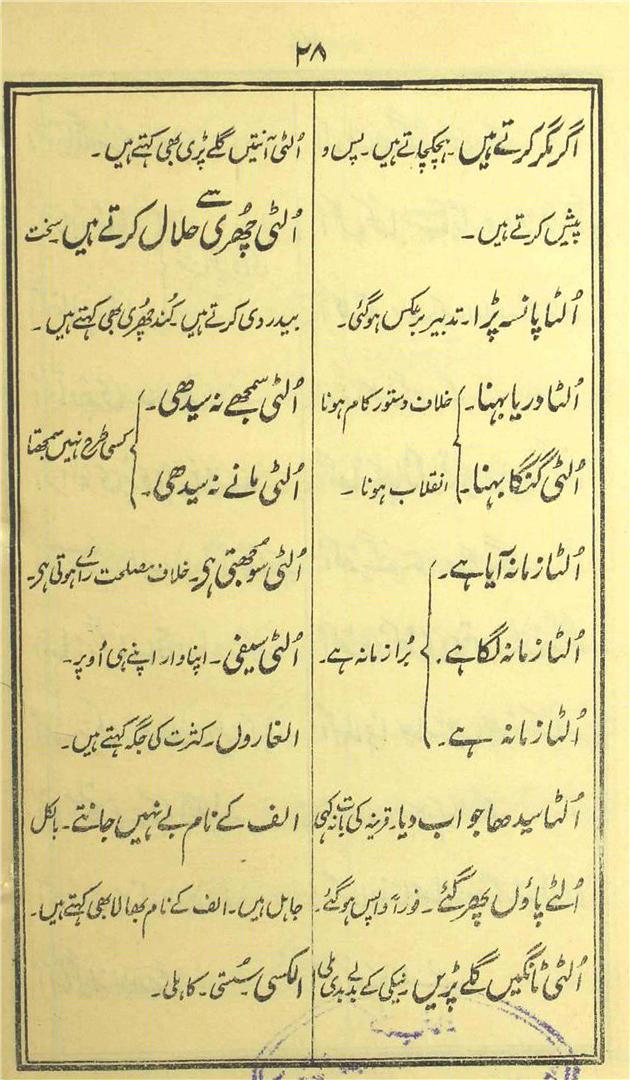 ۲۸
اگر مگر کرتے ہیں۔ ہچکچاتے ہیں۔ پس و
پیش کرتے ہیں۔
اُلٹا پانسہ پڑا۔ تدبیر برعکس ہوگئی۔
اُلٹا دریا بہنا۔ خلاف دستور کام ہونا
اُلٹی گنگا بہنا۔ انقلاب ہونا۔
اُلٹا زمانہ آیا ہے۔
اُلٹا زمانہ لگا ہے۔ بُرا زمانہ ہے۔
اُلٹا زمانہ ہے۔
اُلٹا سیدھا جواب دیا۔ قرینہ کی بات نہ کہی
اُلٹے پاؤں پھر گئے۔ فوراً واپس ہوگئے۔
اُلٹی ٹانگیں گلے پڑیں۔ نیکی کے بدلے بدی ملی
اُلٹی آنتیں گلے پڑی بھی کہتے ہیں۔
اُلٹی چھُری سے حلال کرتے ہیں۔ سخت
بیدردی کرتے ہیں۔ کُند چھُری بھی کہتے ہیں۔
اُلٹی سمجھے نہ سیدھی۔
کسی طرح نہیں سمجھتا
اُلٹی مانے نہ سیدھی۔
اُلٹی سوُجھتی ہی۔ خلاف مصلحت رائے ہوتی ہی۔
اُلٹی سیفی۔ اپنا وار اپنے ہی اُوپر۔
الغاروں۔ کثرت کی جگہ کہتے ہیں۔
الف کے نام بے نہیں جانتے۔ بالکل
جاہل ہیں۔ الف کے نام بھالا بھی کہتے ہیں۔
الکسی۔ سُستی۔ کاہلی۔